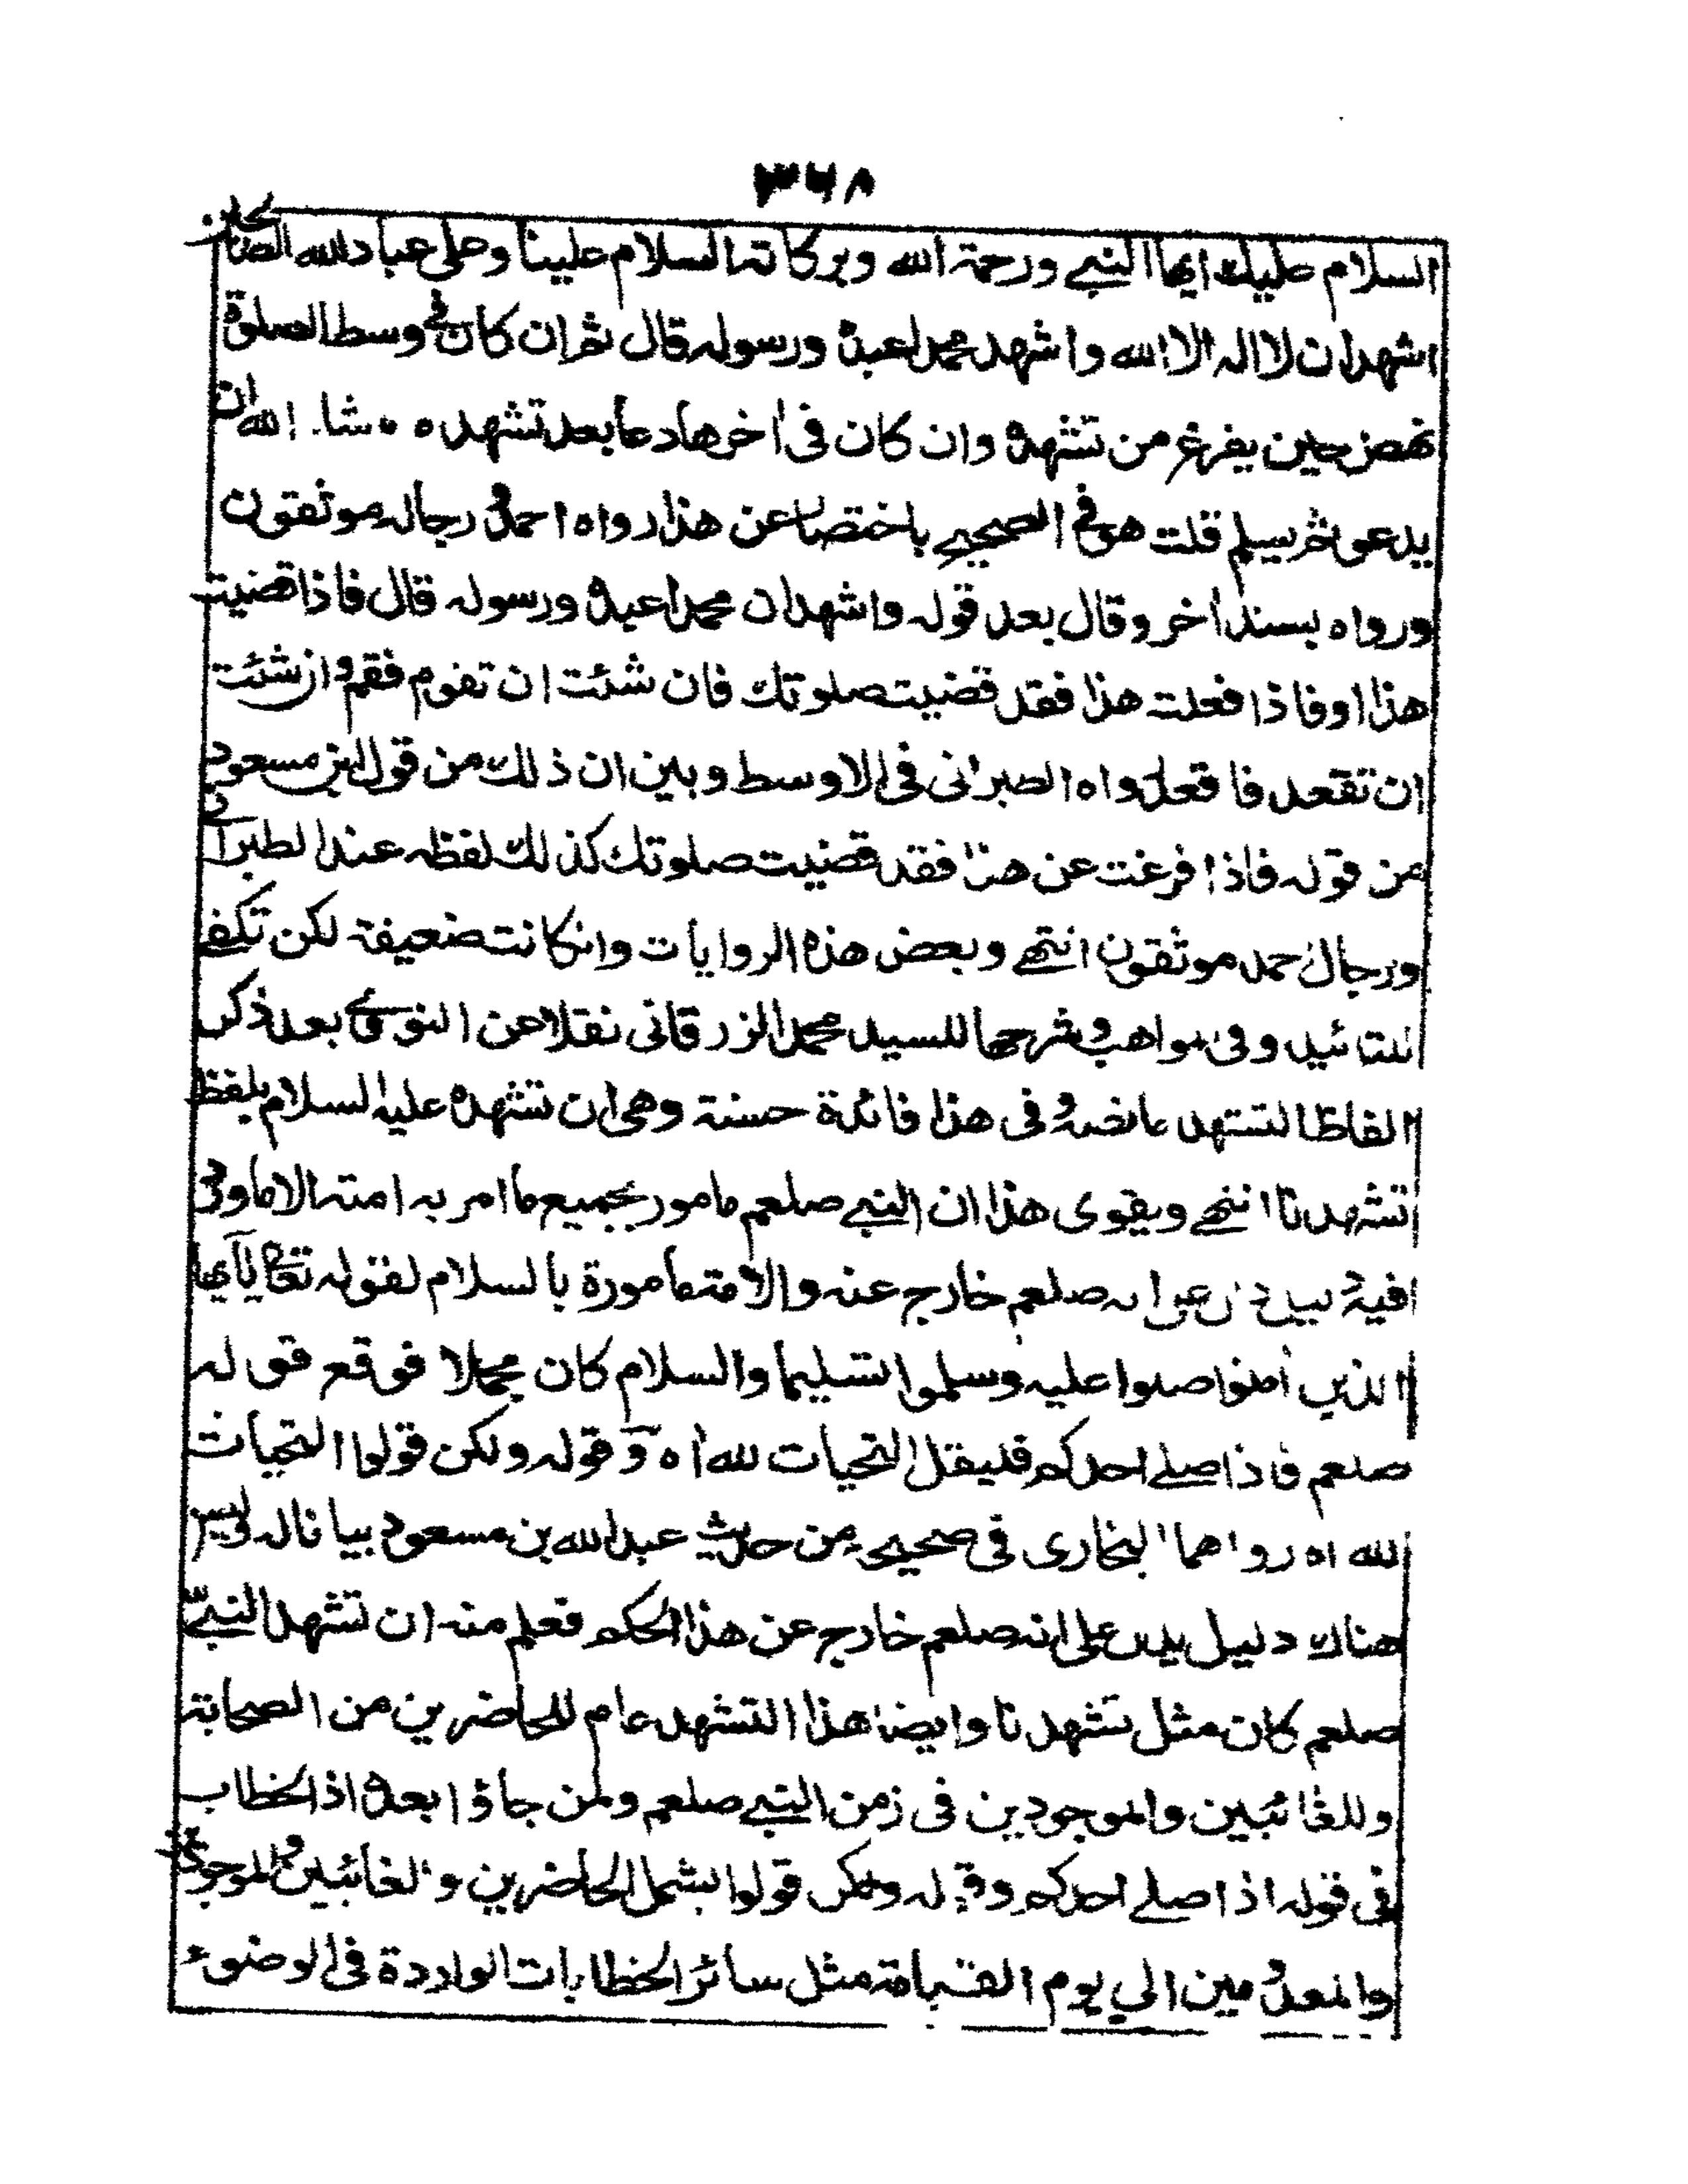 ٣٦٨
السلام عليك ايها النبي ورحمة الله وبركاته السلام علينا وعلى عباد الله الصالحين
اشهد ان لا اله الا الله واشهد محمدا عبده ورسوله قال ثم ان كان في وسط الصلوة
نهض حين يفرغ من تشهده وان كان فى اخرها دعا بعد تشهده ما شاء الله ان
يدعو ثم يسلم قلت هو في الصحيح باختصار عن هذا رواه احمد ورجاله موثقون
ورواه بسند اخر وقال بعد قوله واشهد ان محمدا عبده ورسوله قال فاذا قضيت
هذا او فاذا فعلت هذا فقد قضيت صلوتك فان شئت ان تقوم فقم وان شئت
ان تقعد فاقعد رواه الطبرانى فى الاوسط وبين ان ذلك من قول ابن مسعود
من قوله فاذا فرغت عن هذا فقد قضيت صلوتك كذلك لفظه عند الطبراني
ورجال احمد موثقون انتهى وبعض هذه الروايات وانكانت ضعيفة لكن تكفى
للتائيد وفى المواهب وشرحها للسيد محمد الزرقانى نقلا عن النووي بعد ذكر
الفاظ التشهد ما نصه وفى هذا فائدة حسنة وهى ان تشهده عليه السلام بلفظ
تشهدنا انتهى ويقوى هذا ان النبي صلعم مامور بجميع ما امر به امته الا ما وقع
فيه دليل على انه صلعم خارج عنه والامة مامورة بالسلام لقوله تعالى يا ايها
الذين امنوا صلوا عليه وسلموا تسليما والسلام كان مجملا فوقع قوله
صلعم فاذا صلى احدكم فليقل التحيات لله اه وقوله ولكن قولوا التحيات
لله اه رواهما البخارى فى صحيحه من حديث عبد الله بن مسعود بيانا له وليس
هناك دليل يدل على انه صلعم خارج عن هذا الحكم فعلم منه ان تشهد النبي
صلعم كان مثل تشهدنا وايضا هذا التشهد عام للحاضرين من الصحابة
وللغائبين والموجودين فى زمن النبي صلعم ولمن جاؤا بعده اذ الخطاب
فى قوله اذا صلى احدكم وقوله ولكن قولوا يشمل الحاضرين والغائبين والموجودين
والمعدومين الي يوم القيامة مثل سائر الخطابات الواردة فى الوضوء